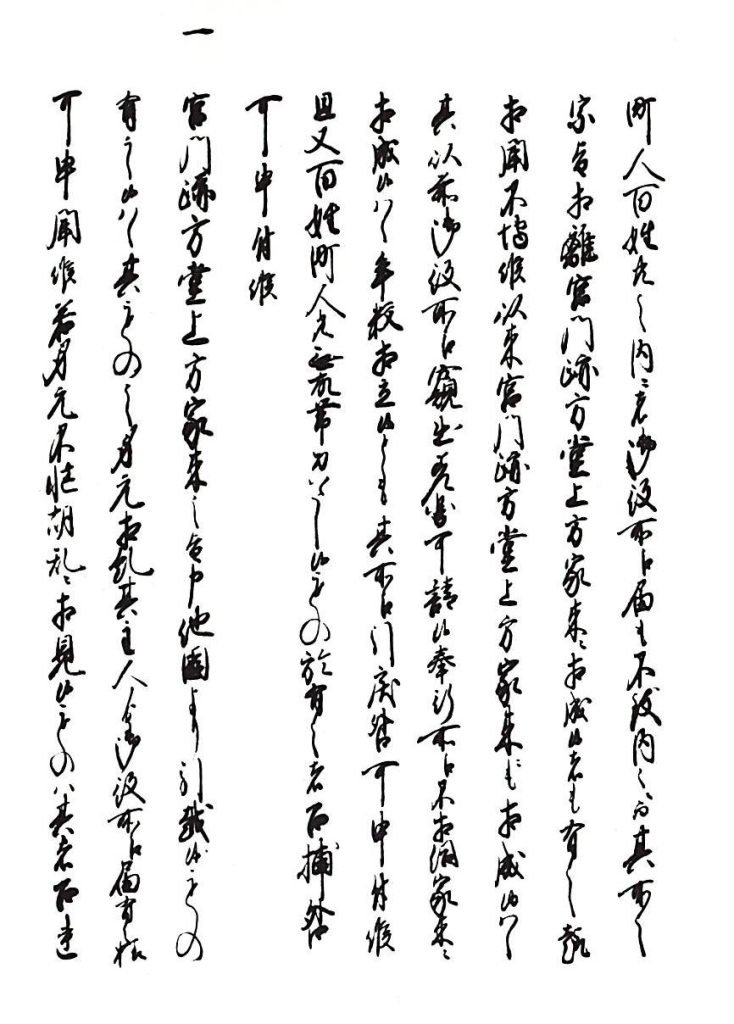 町人百姓共之内ニ者御役所江届も不致内々ニ而其所之
宗旨相離宮門跡方堂上方家来ニ相成候者も有之趣
相聞不埒候以来宮門跡方堂上方家来ニ相成候ハヽ
其以前御役所江窺出差図可請候奉行所江不相伺家来ニ
相成候ハヽ年数相立候とも其所江引戻咎可申付候
且又百姓町人共無故帯刀いたし候もの於有之者召捕咎
可申付候
一
宮門跡方堂上方家来之旨申他国より引越候もの
有之候ハヽ其もの之身元相糺其主人より御役所江届有之様
可申聞候若身元不慥胡乱ニ相見候ものハ其者召連